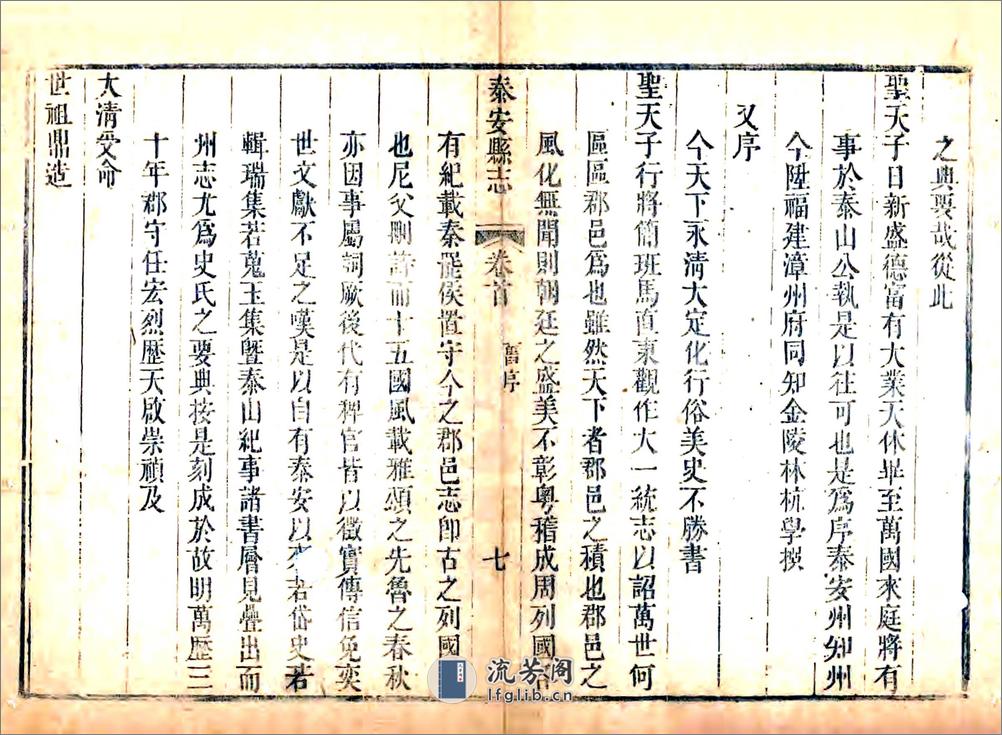 之典要哉從此
聖天子日新盛德富有大業天休畢至萬國來庭將有
事於泰山公執是以往可也是爲序泰安州知州
今陞福建漳州府同知金陵林杭學撰
又序
今天下永清大定化行俗美史不勝書
聖天子行將簡班馬直東觀作大一統志以詔萬世何
區區郡邑爲也雖然天下者郡邑之積也郡邑之
風化無聞則朝廷之盛美不彰粵稽成周列國
泰安縣志
卷首
舊序
七
有紀載秦罷侯置守今之郡邑志卽古之列國
也尼父刪詩而十五國風載雅頌之先魯之春秋
亦因事屬詞厥後代有稗官皆以徵實傳信免奕
世文獻不足之嘆是以自有泰安以來若岱史若
輯瑞集若蒐玉集曁泰山紀事諸書層見疊出而
州志尤爲史氏之要典按是刻成於故明萬歷三
十年郡守任宏烈歷天啟崇禎及
大清受命
世祖鼎造
流芳阁
lfglib.cn